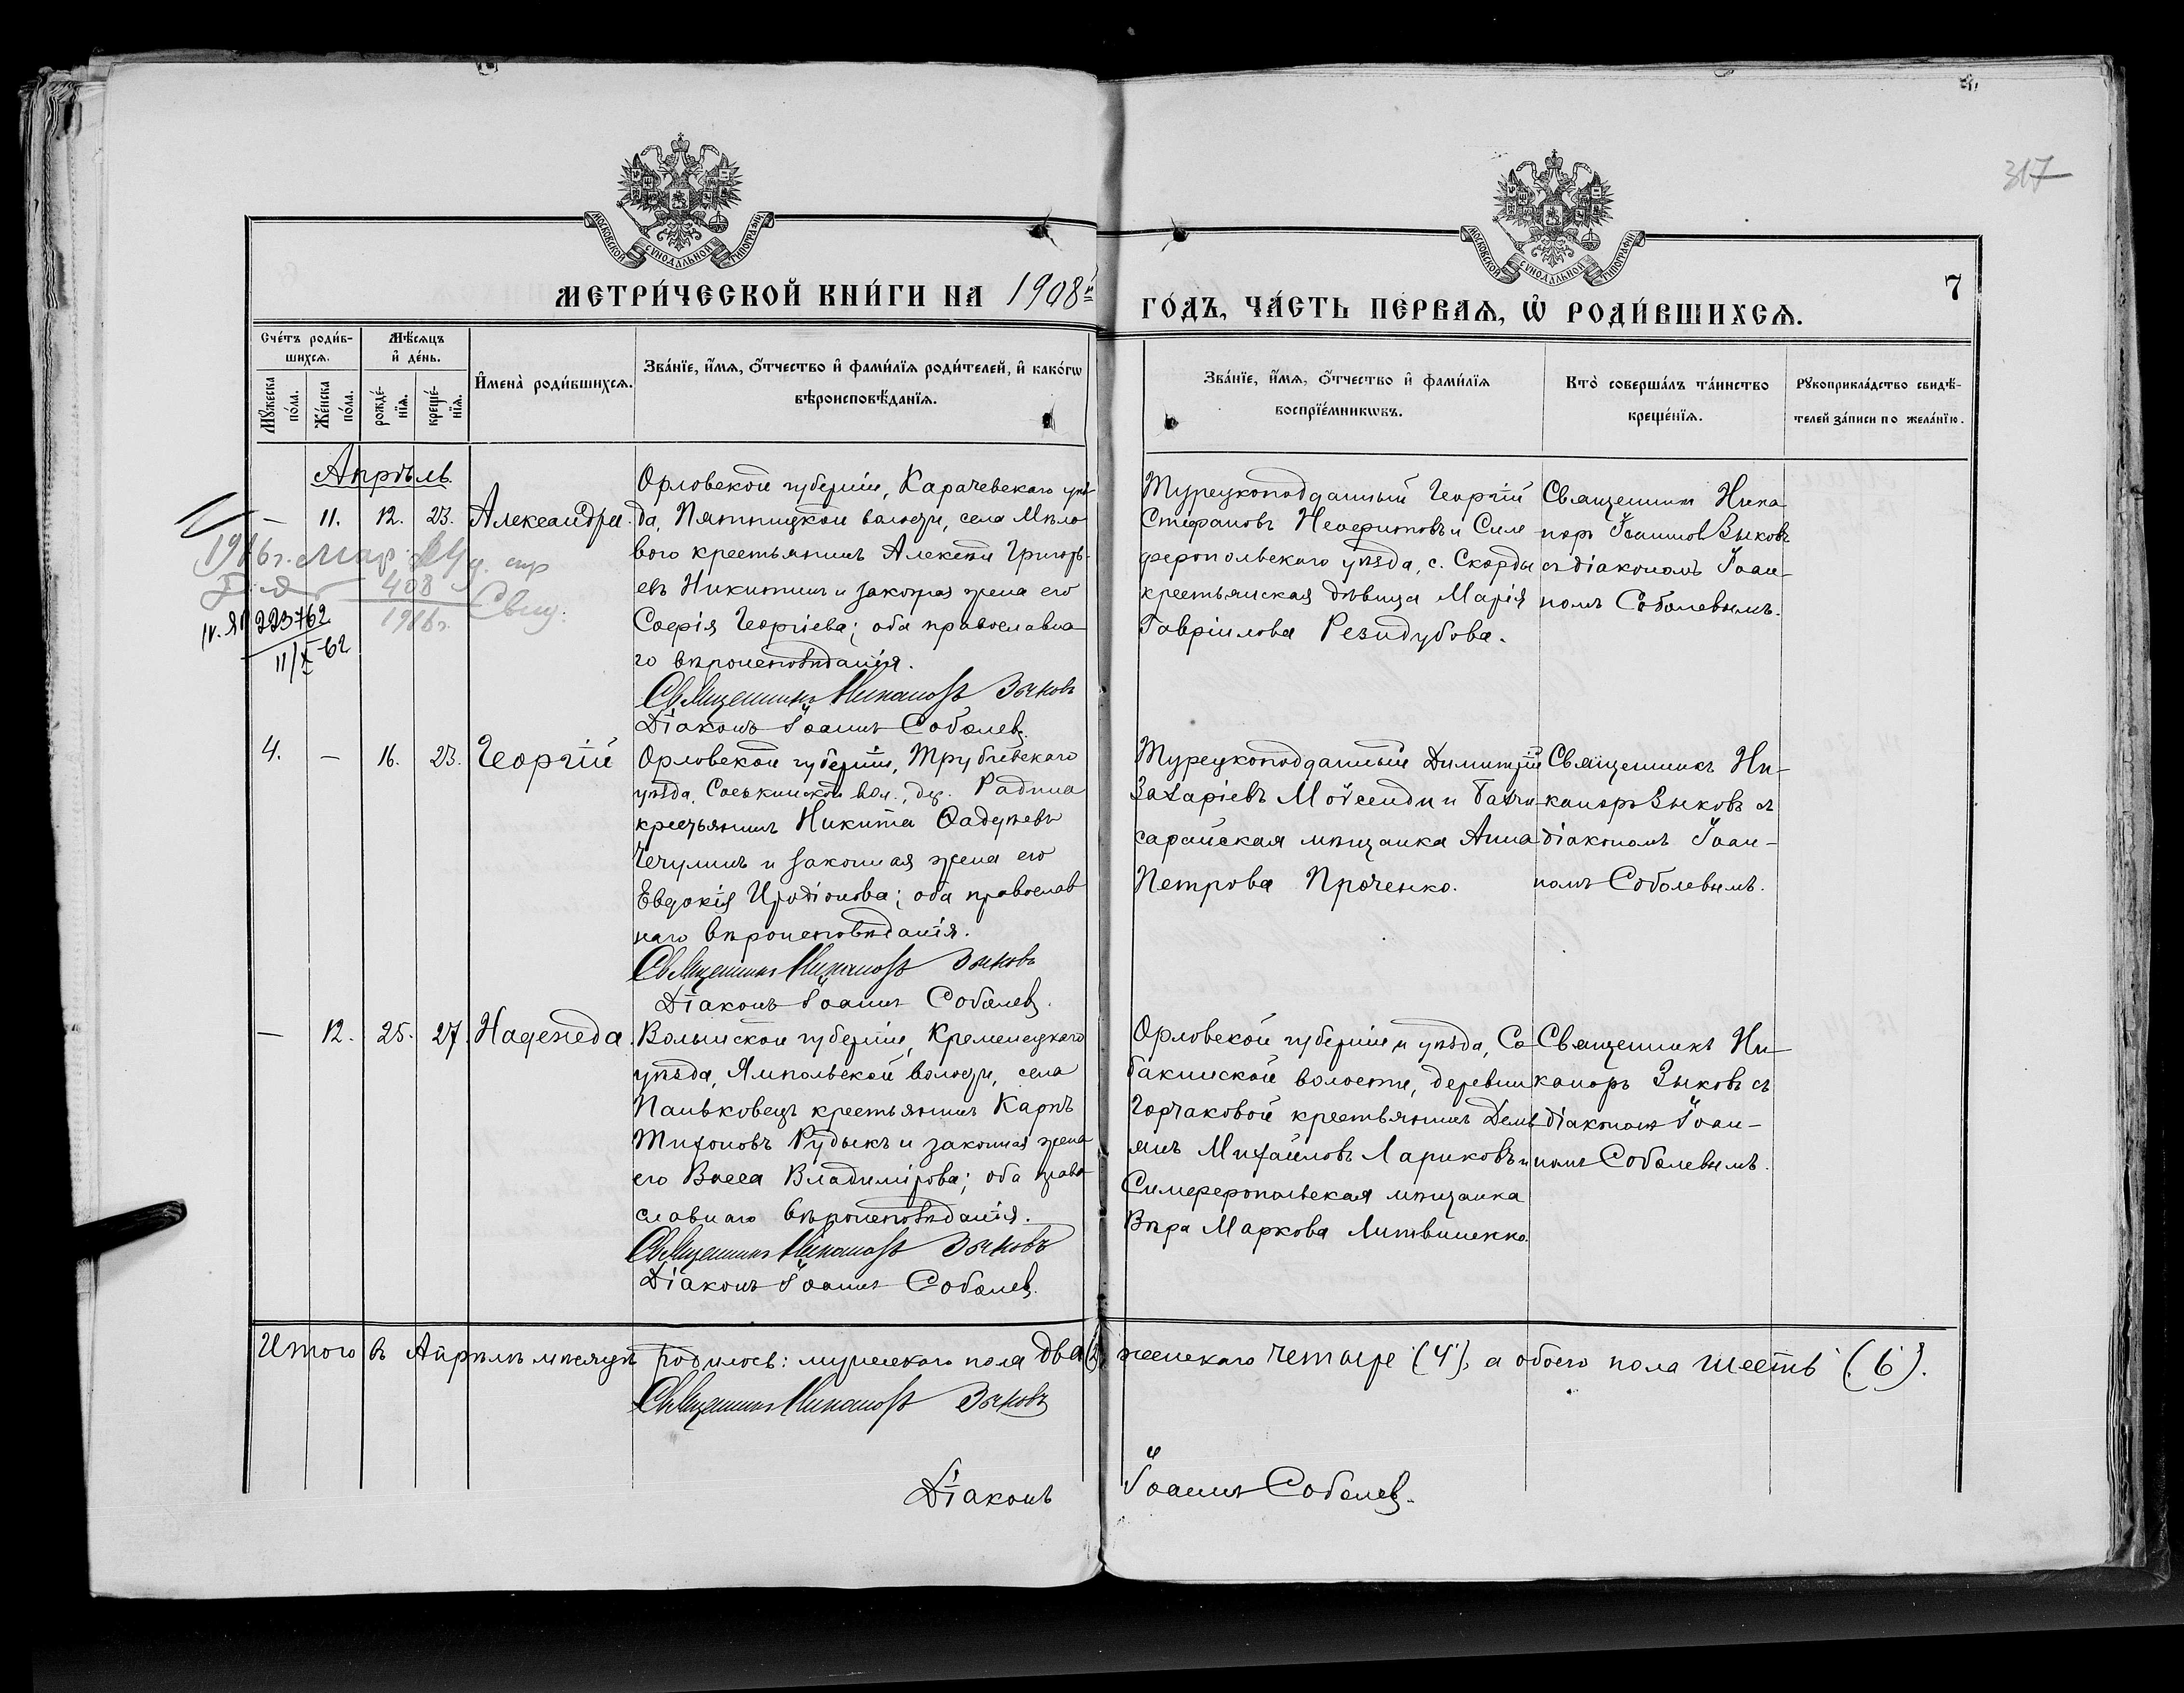 317
МОСКОВСКОЙ СУНОДАЛЬНОЙ ТИПОГРАФІИ
МОСКОВСКОЙ СУНОДАЛЬНОЙ ТИПОГРАФІИ
МЕТРИ́ЧЕСКОЙ КНИ́ГИ НА 1908й
ГО́ДЪ, ЧА́СТЬ ПЕРВАѦ, Ѡ҆ РОДИ́ВШИХСѦ.
7
Сче́тъ роди́в-
шихсѧ.
Мꙋ́жеска
по́ла.
Же́нска
по́ла.
Мѣ́сѧцъ
и҆ де́нь.
рожде́-
нїѧ.
креще́-
нїѧ.
И҆мена̀ роди́вшихсѧ.
Зва́нїе, и҆́мѧ, ѻ҆́тчество и҆ фами́лїѧ роди́телей, и҆ како́гѡ
вѣроисповѣ́данїѧ.
Зва́нїе, и҆́мѧ, ѻ҆́тчество и҆ фами́лїѧ
воспрїе́мникѡвъ.
Кто̀ соверша́лъ та́инство
креще́нїѧ.
Рꙋкоприкла́дство свидѣ́-
телей за́писи по жела́нїю.
Апрѣль.
— 11. 12. 23. Александра.
Орловской губерніи, Карачевскаго уѣз-
да, Пятницкой волости, села Мѣло-
вого крестьянинъ Алексѣй Григорь-
евъ Никитинъ и законная жена его
Софія Георгіева; оба православна-
го вѣроисповѣданія.
Священникъ Никаноръ Зыковъ
Діаконъ Іоаннъ Соболевъ.
Турецкоподданный Георгій
Стефановъ Неофитовъ и Сим-
феропольскаго уѣзда, с.
крестьянская дѣвица Марія
Гавріилова
Священникъ Ника-
норъ Іоанновъ Зыковъ
съ діакономъ Іоан-
номъ Соболевымъ.
408
223762
11/X-62
4. — 16. 23. Георгій
Орловской губерніи, Трубчевскаго
уѣзда, вол., дер. Радина
крестьянинъ Никита Ѳадѣевъ
Чечулинъ и законная жена его
Евдокія Иродіонова; оба православ-
наго вѣроисповѣданія.
Священникъ Никаноръ Зыковъ
Діаконъ Іоаннъ Соболевъ.
Турецкоподданный Димитрій
Захаріевъ и Бахчи-
сарайская мѣщанка Анна
Петрова Проченко.
Священникъ Ни-
каноръ Зыковъ съ
діакономъ Іоан-
номъ Соболевымъ.
— 12. 25. 27. Надежда.
Волынской губерніи, Кременецкаго
уѣзда, Ямпольской волости, села
Паньковецъ крестьянинъ Карпъ
Тихоновъ Рудыкъ и законная жена
его Васса Владимірова; оба право-
славнаго вѣроисповѣданія.
Священникъ Никаноръ Зыковъ
Діаконъ Іоаннъ Соболевъ.
Орловской губерніи и уѣзда, Со-
бакинской волости, деревни
Горчаковой крестьянинъ Демь-
янъ Михайловъ Лариковъ и
Симферопольская мѣщанка
Вѣра Маркова Литвиненко.
Священникъ Ни-
каноръ Зыковъ съ
діакономъ Іоан-
номъ Соболевымъ.
Итого въ Апрѣлѣ мѣсяцѣ родилось: мужескаго пола два (2), женскаго четыре (4), а обоего пола шесть (6).
Священникъ Никаноръ Зыковъ
Діаконъ Іоаннъ Соболевъ.